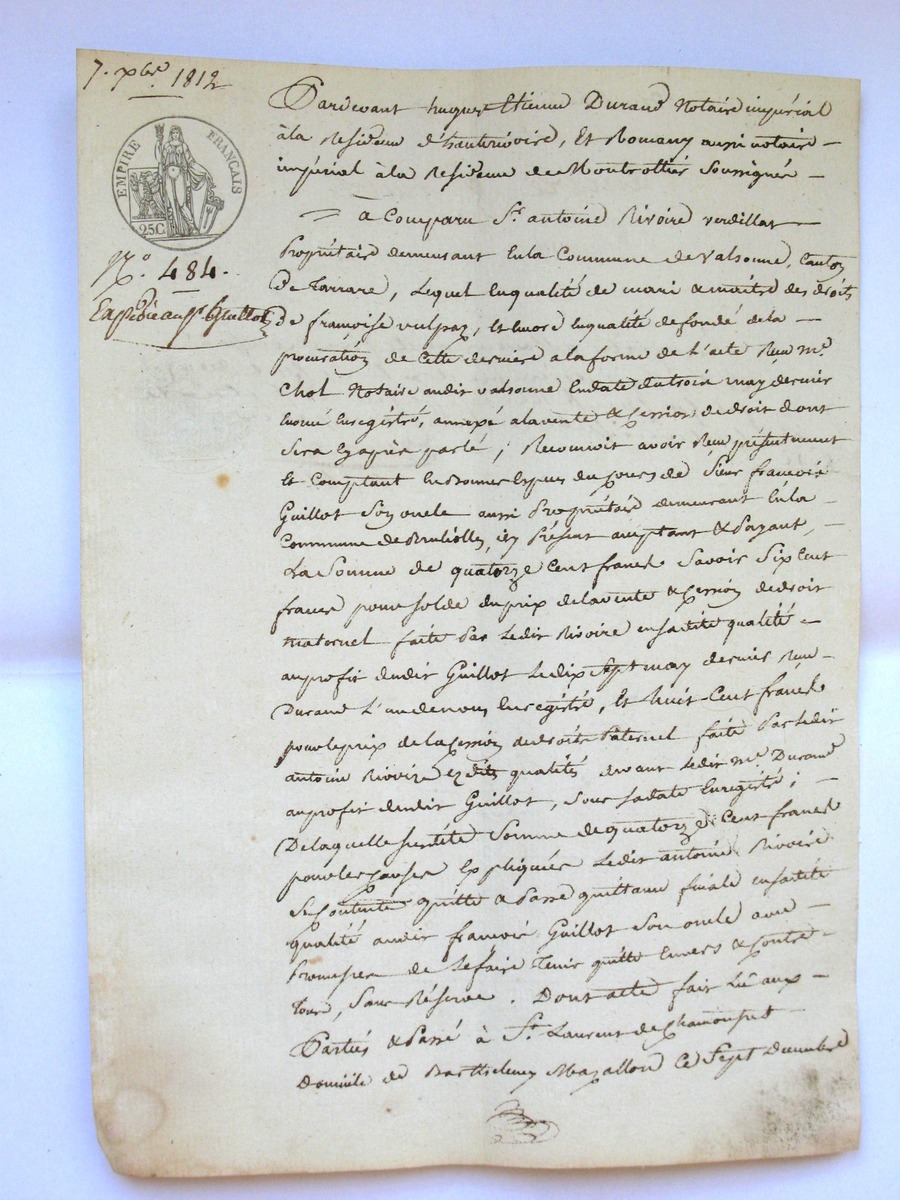 7. xbre 1812
EMPIRE FRANÇAIS
25C.
N.o 484.
Expédié au sr Guillot
Pardevant hugues Etienne Durand Notaire impérial
à la Residence d'hauterivoire, Et Romany aussi notaire
impérial à la Residence de Montrottier Soussignés
à Comparu Sr. antoine Rivoire verdillat
Propriétaire demeurant En la Commune de valsonne, Canton
De Tarrare, Lequel En qualité de mari & maitre des droits
De françoise vulpaz, Et Encore En qualité de fondé de la
procuration de Cette derniere a la forme de L'acte Reçu me.
Chol Notaire audit valsonne En date du trois may dernier
Enregistré, annexé a la vente & Cession de droit dont
Sera Cy après parlé; Reconnoit avoir Reçu présentement
Et Comptant En Bonnes Espèces du Cours de Sieur françois
Guillot Son oncle aussi Propriétaire demeurant En la
Commune de Brulliolles, icy Présent acceptant & Payant,
La Somme de quatorze Cent francs Savoir Six Cent
francs pour solde du prix de la vente & Cession de droit
maternel faite Par Ledit Rivoire en sa dite qualité
au profit dudit Guillot Le dix Sept may dernier Reçu
Durand L'un de nous Enregistré, Et huit Cent francs
pour le prix de la Cession de droits Paternel faite Par Ledit
antoine Rivoire ez dites qualités devant Ledit me. Durand
au profit dudit Guillot, Sous Sa date Enregistré;
De laquelle susdite Somme de quatorze Cent francs
pour les causes Expliquées Ledit antoine Rivoire
Se Contente quitte & Passe quittance finale en sa dite
qualité audit françois Guillot Son oncle avec
Promesse de Le faire Tenir quitte Envers & Contre
Tous, Sans Réserve. Dont acte fait Lû aux
Parties & Passé à St. Laurent de Chamousset
domicile de Barthelemy Mazallon Ce Sept Decembre